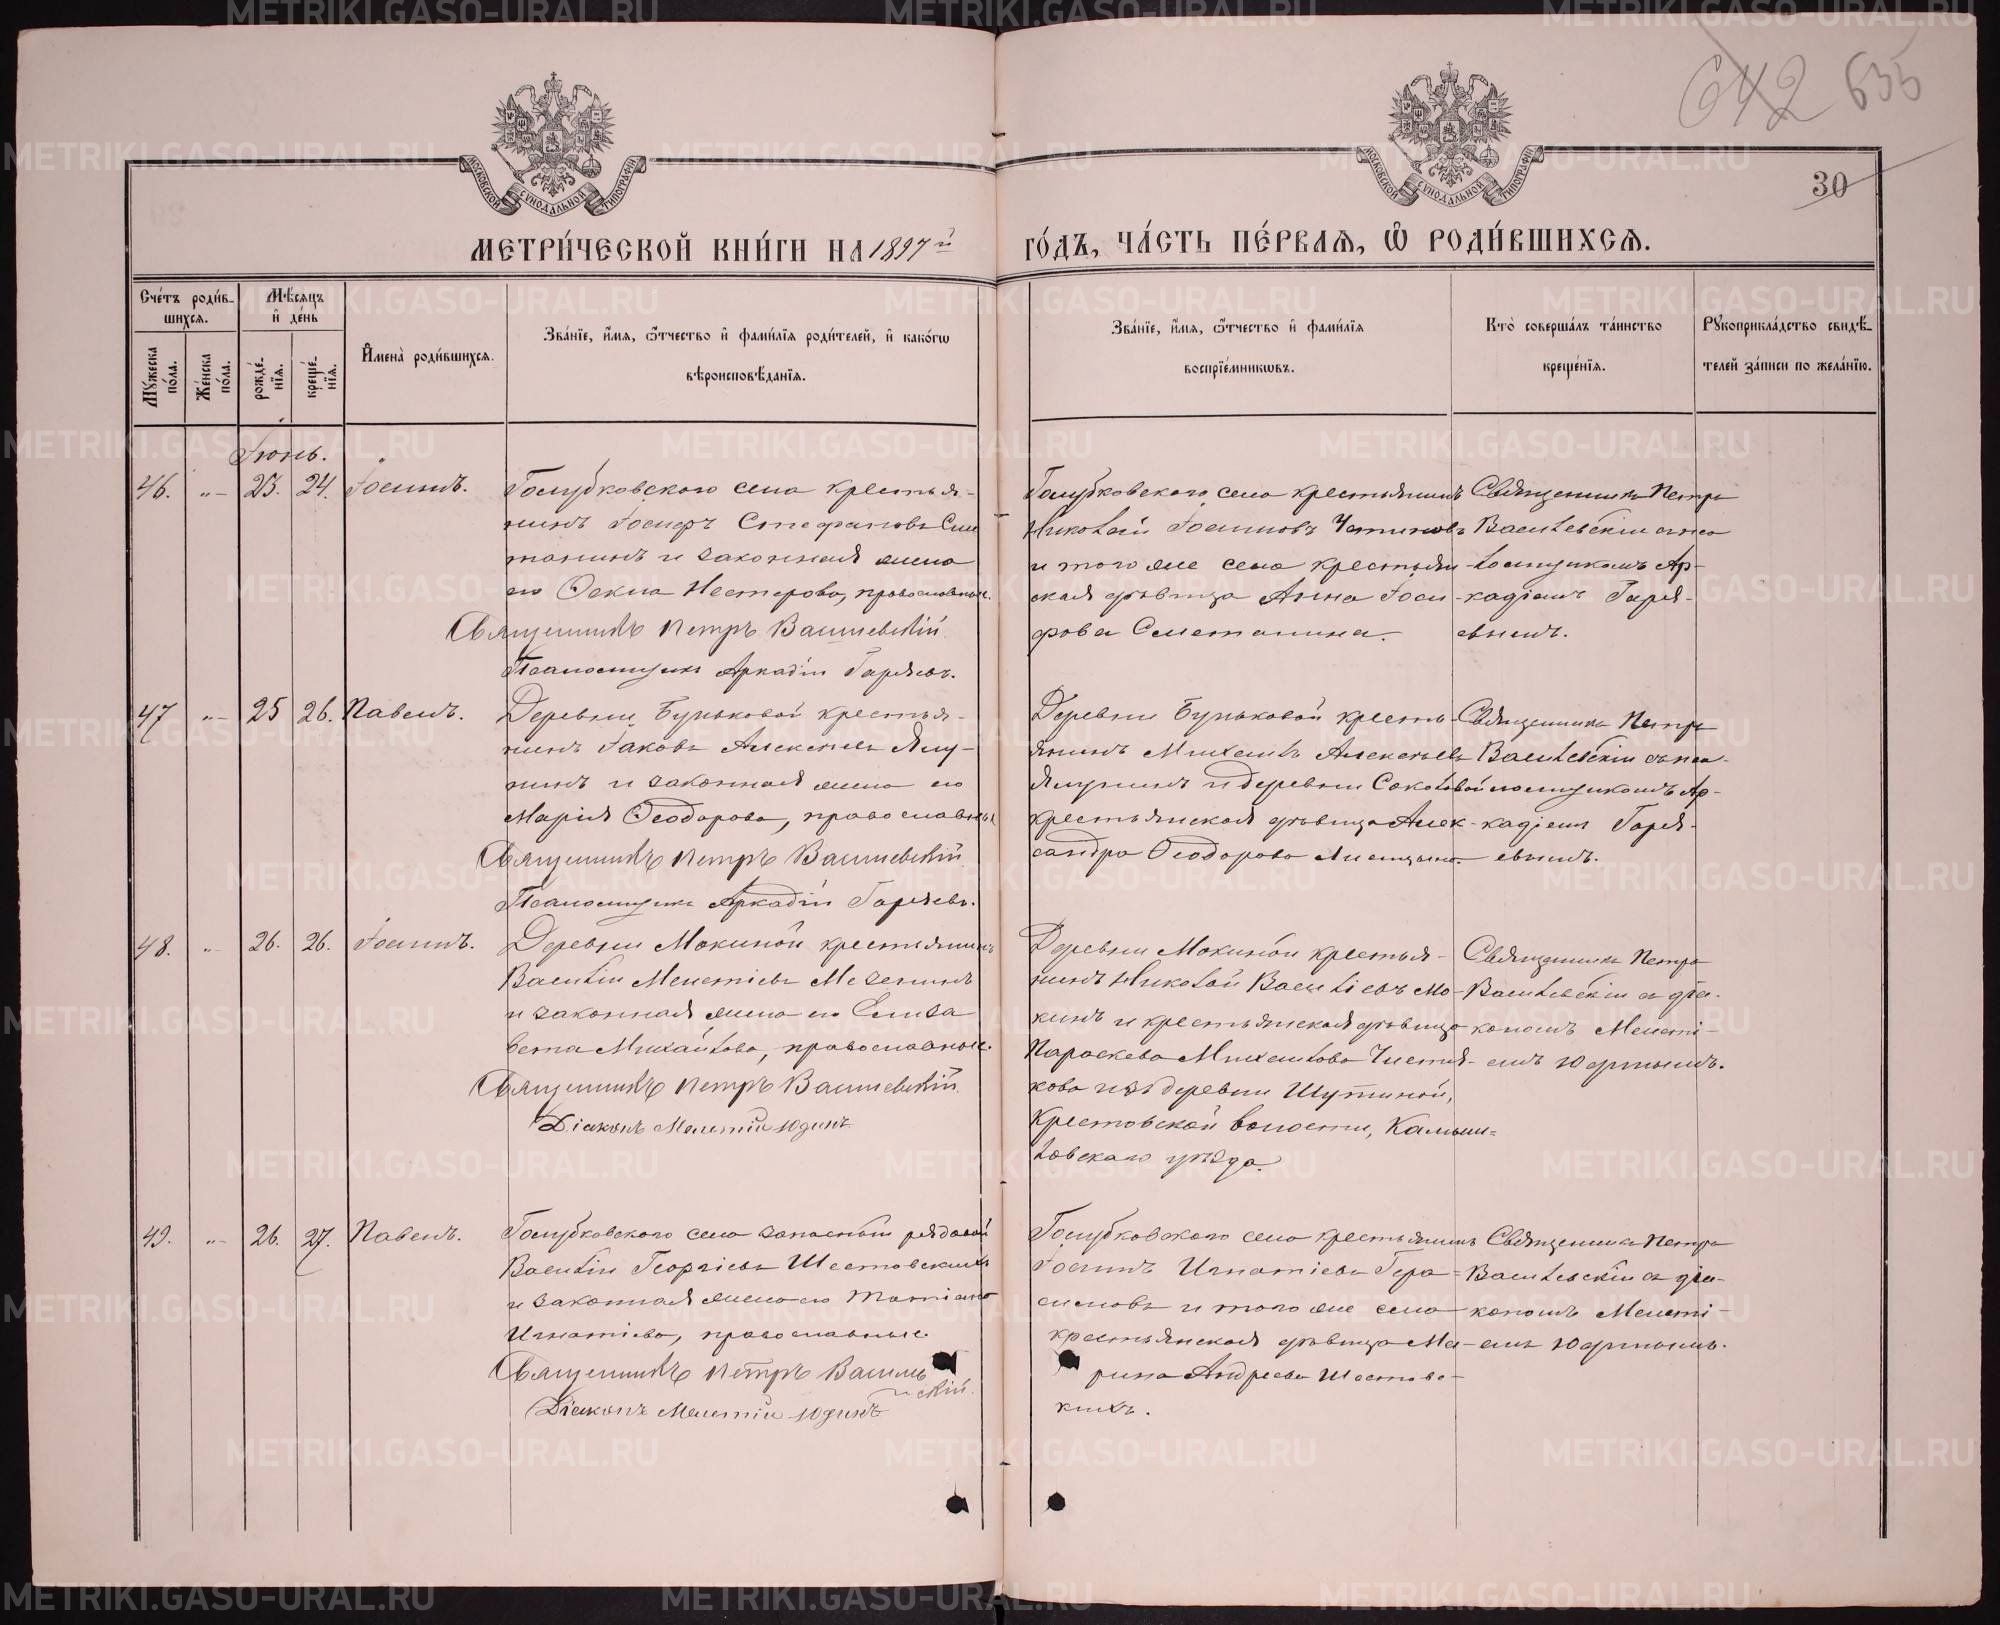 642 635
МОСКОВСКОЙ СѴНОДАЛЬНОЙ ТИПОГРАФІИ
МОСКОВСКОЙ СѴНОДАЛЬНОЙ ТИПОГРАФІИ
30
МЕТРИ́ЧЕСКОЙ КНИ́ГИ НА 1897й
ГО́ДЪ, ЧА́СТЬ ПЕ́РВАЯ, Ѡ РОДИ́ВШИХСЯ.
Сче́тъ роди́в-
шихся.
Мѣ́сяцъ
и де́нь
Му́жеска
по́ла.
Же́нска
по́ла.
рожде́-
нія.
креще́-
нія.
Имена̀ роди́вшихся.
Зва́ніе, и́мя, ѻ҆́тчество и фами́лія роди́телей, и како́гѡ
вѣроисповѣ́данія.
Зва́ніе, и́мя, ѻ҆́тчество и фами́лія
воспріе́мникѡвъ.
Кто̀ соверша́лъ та́инство
креще́нія.
Рукоприкла́дство свидѣ́-
телей за́писи по жела́нію.
Іюнь.
46. „– 23. 24. Іоаннъ.
Голубковскаго села крестья-
нинъ Іосифъ Стефановъ Сме
танинъ и законная жена
его Ѳекла Нестерова, православные.
Священникъ Петръ Василевскій
Псаломщикъ Аркадій Гаряевъ.
Голубковскаго села крестьянинъ
Николай Іоанновъ
и того же села крестьян-
ская дѣвица Анна Іоси-
фова Сметанина.
Священникъ Петръ
Василевскій съ пса
ломщикомъ Ар-
кадіемъ Гаря-
евымъ.
47 „– 25 26. Павелъ.
Деревни Буньковой крестья-
нинъ Іаковъ Алексѣевъ Ялу-
нинъ и законная жена его
Марія Ѳеодорова, православные
Священникъ Петръ Василевскій
Псаломщикъ Аркадій Гаряевъ.
Деревни Буньковой кресть-
янинъ Михаилъ Алексѣевъ
Ялунинъ и деревни Соколовой
крестьянская дѣвица Алек-
сандра Ѳеодорова
Священникъ Петръ
Василевскій съ пса-
ломщикомъ Ар-
кадіемъ Гаря-
евымъ.
48. „– 26. 26. Іоаннъ.
Деревни Мокиной крестьянинъ
Василій Мелетіевъ Мезенинъ
и законная жена его Елиза
вета Михайлова, православные.
Священникъ Петръ Василевскій
Діаконъ Мелетій Юдинъ
Деревни Мокиной крестья-
нинъ Николай Василіевъ Мо-
кинъ и крестьянская дѣвица
Параскева Михаилова Чистя-
кова изъ деревни Шутиной,
Крестовской волости, Камыш-
ловскаго уѣзда.
Священникъ Петръ
Василевскій съ діа-
кономъ Мелеті-
емъ Юдинымъ.
49. „– 26. 27. Павелъ.
Голубковскаго села запасный рядовой
Василій Георгіевъ Шестовскихъ
и законная жена его Татіана
Игнатіева, православные.
Священникъ Петръ Василев
скій.
Діаконъ Мелетій Юдинъ
Голубковскаго села крестьянинъ
Іоаннъ Игнатіевъ Гера-
симовъ и того же села
крестьянская дѣвица Ма-
рина Андреева Шестовс-
кихъ.
Священникъ Петръ
Василевскій съ діа-
кономъ Мелеті-
емъ Юдинымъ.
METRIKI.GASO-URAL.RU